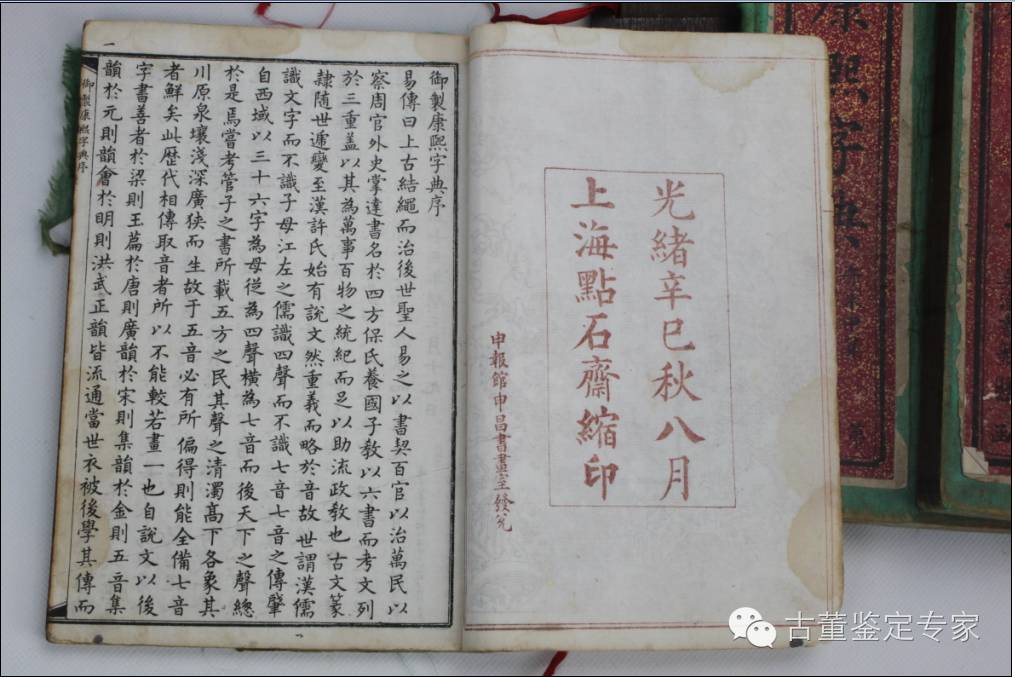 光緒辛巳秋八月
上海點石齋縮印
申報館申昌書畫室發兌
御製康熙字典序
易傳曰上古結繩而治後世聖人易之以書契百官以治萬民以
察周官外史掌達書名於四方保氏養國子教以六書而考文列
於三重蓋以其為萬事百物之統紀而足以助流政教也古文篆
隸隨世遞變至漢許氏始有說文然重義而略於音故世謂漢儒
識文字而不識子母江左之儒識四聲而不識七音七音之傳肇
自西域以三十六字為母從為四聲橫為七音而後天下之聲總
於是焉嘗考管子之書所載五方之民其聲之清濁高下各象其
川原泉壤淺深廣狹而生故于五音必有所偏得則能全備七音
者鮮矣此歷代相傳取音者所以不能較若畫一也自說文以後
字書善者於梁則玉篇於唐則廣韻於宋則集韻於金則五音集
韻於元則韻會於明則洪武正韻皆流通當世衣被後學其傳而
御製康熙字典序
一
康熙字典
古董鉴定专家